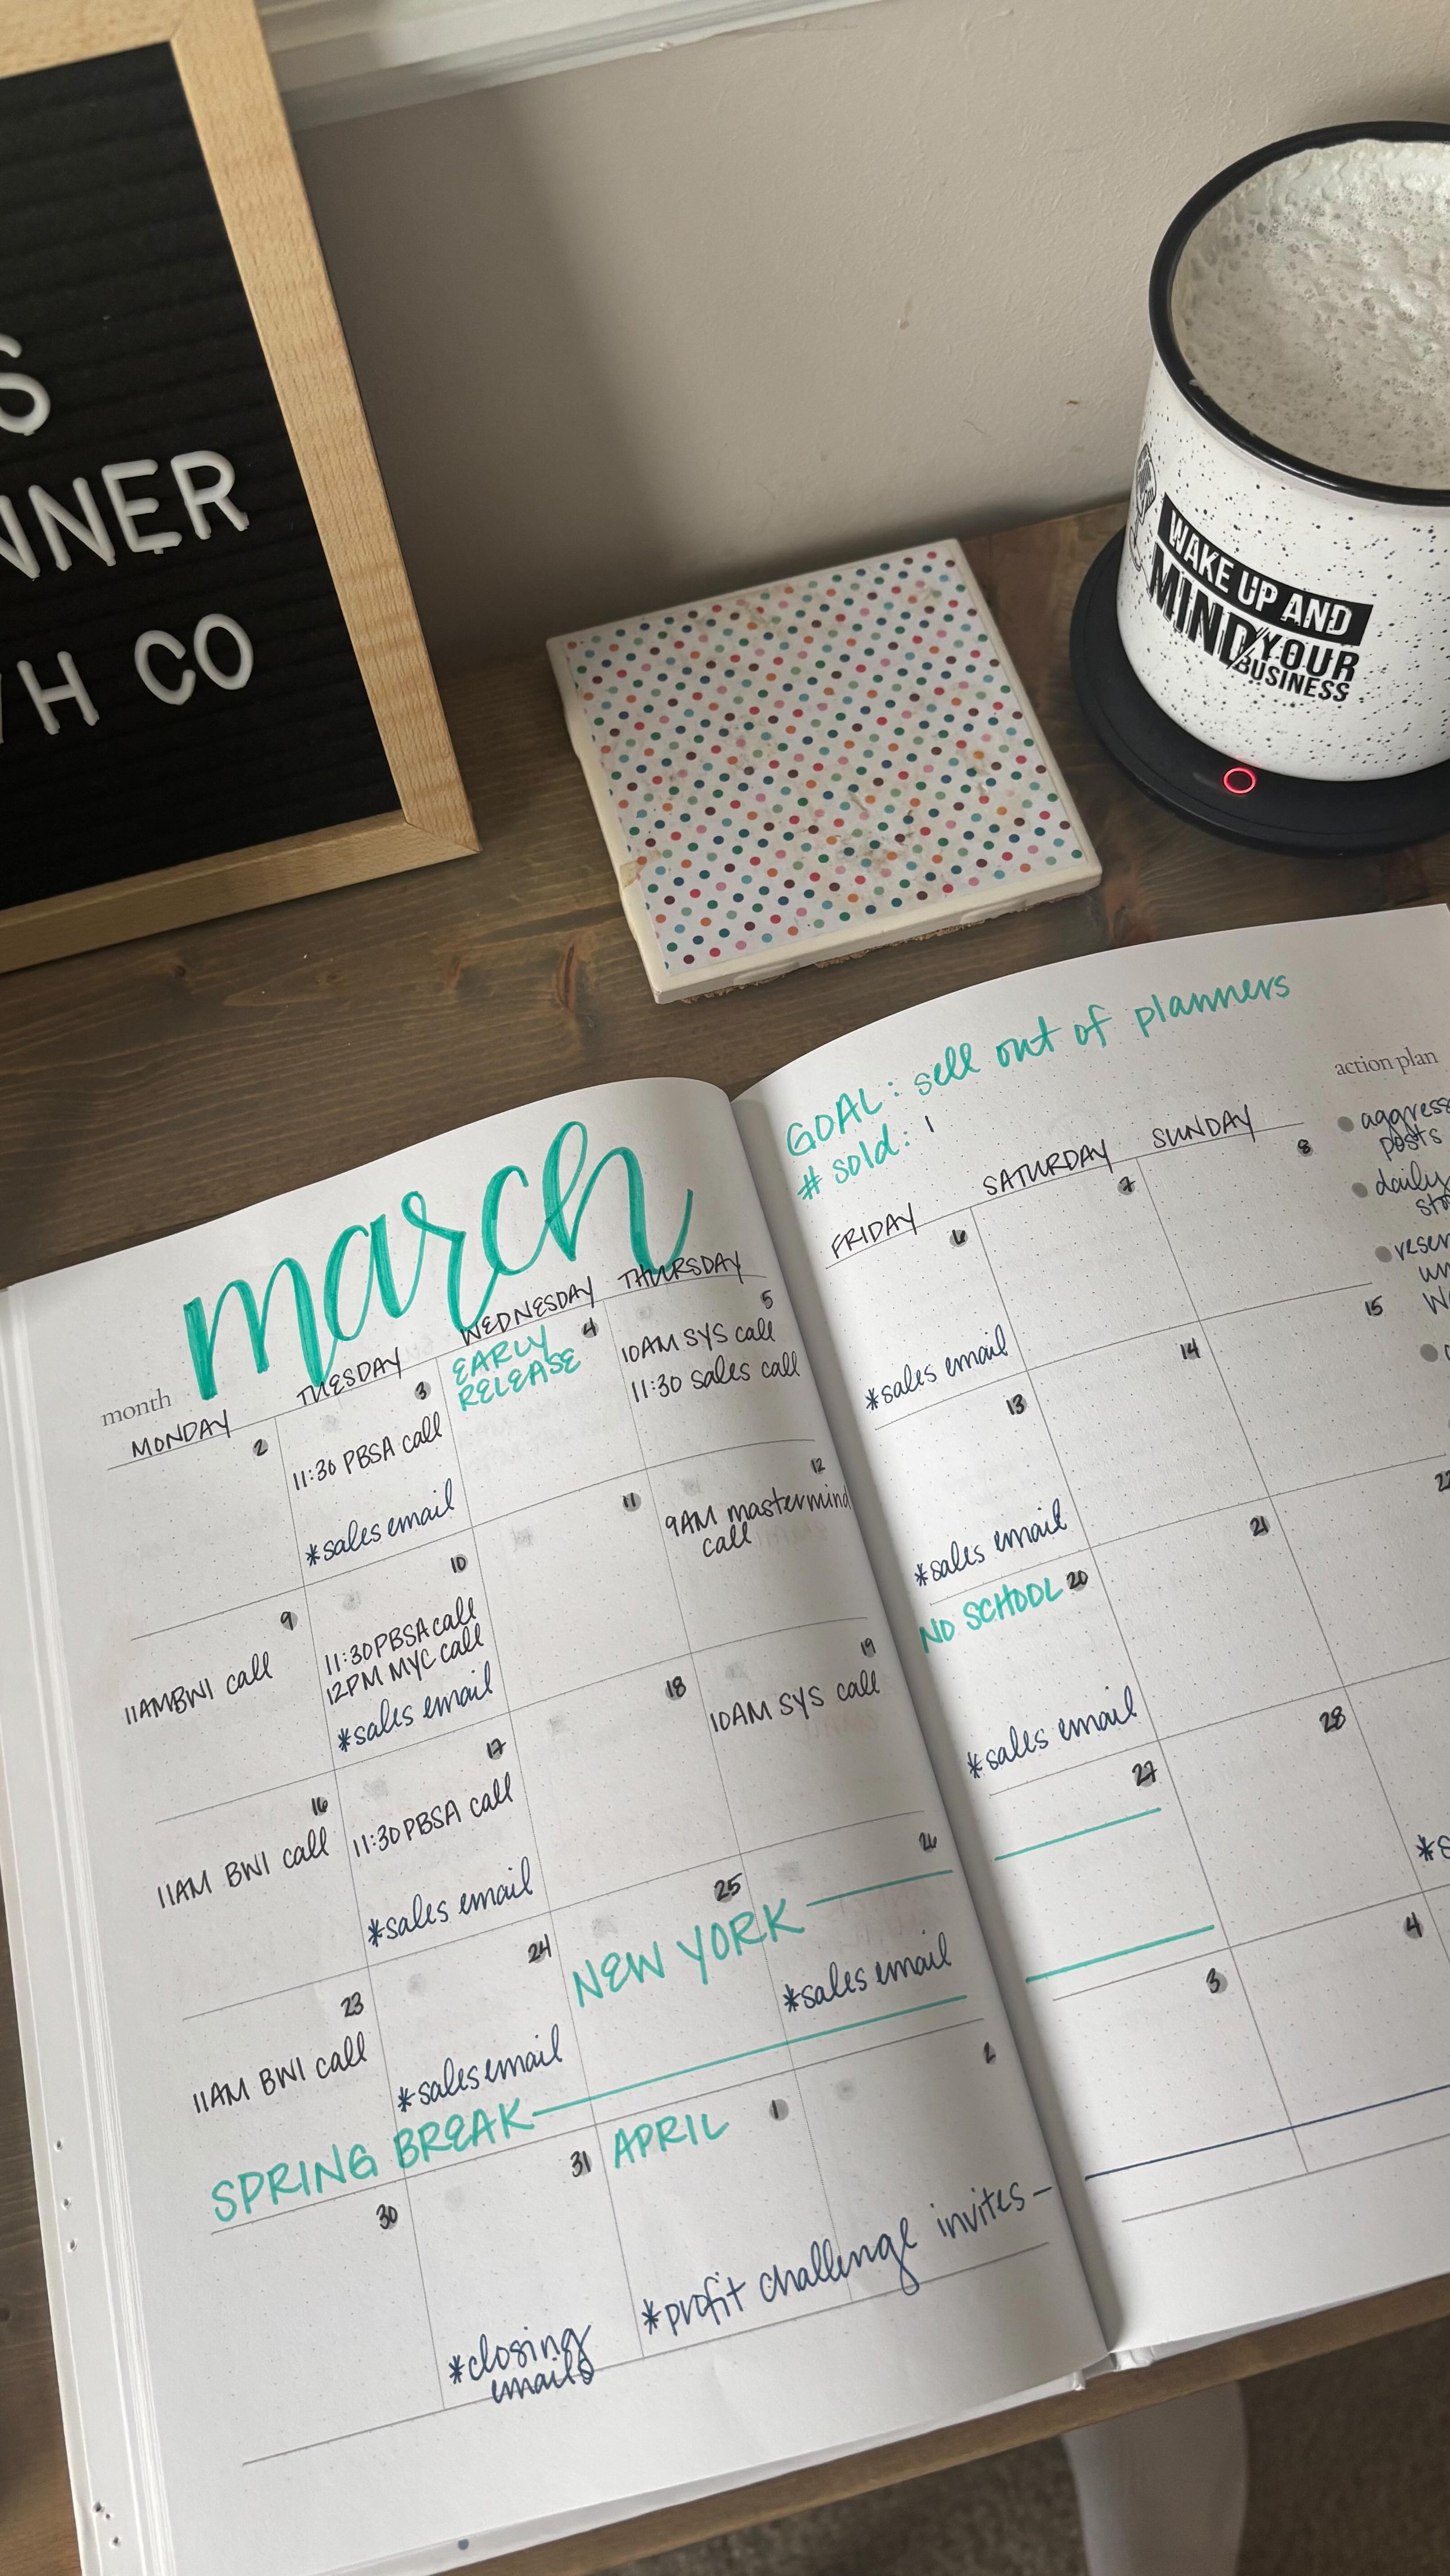 S
NNER
H CO
WAKE UP AND
MIND YOUR
BUSINESS
month
march
MONDAY
TUESDAY
WEDNESDAY
THURSDAY
2
3
11:30 PBSA call
*sales email
4
EARLY
RELEASE
5
10AM SYS call
11:30 sales call
9
11AM BWI call
10
11:30 PBSA call
12PM MYC call
*sales email
11
12
9AM mastermind
call
16
11AM BWI call
17
11:30 PBSA call
*sales email
18
19
10AM SYS call
23
11AM BWI call
24
*sales email
25
NEW YORK
26
*sales email
SPRING BREAK
30
31
*closing
emails
APRIL
1
2
*profit challenge invites-
GOAL: sell out of planners
# sold: 1
FRIDAY
SATURDAY
SUNDAY
6
*sales email
7
8
13
*sales email
14
15
NO SCHOOL
20
*sales email
21
22
27
28
*s
3
4
action plan
aggress
posts
daily
sto
reser
un
W